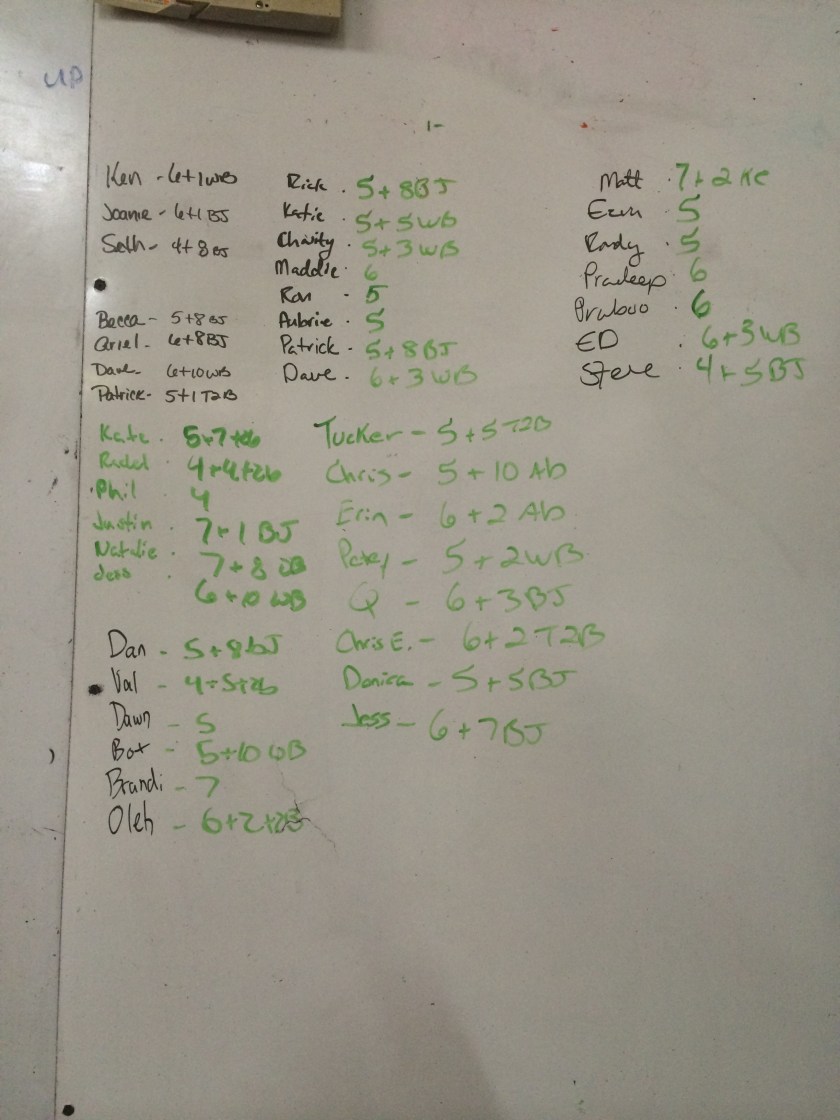 UP
1-
Ken - 6+1WB
Joanie - 6+1BJ
Seth - 4+8BJ
Becca - 5+8BJ
Ariel - 6+8BJ
Dave - 6+10WB
Patrick - 5+1T2B
Rick . 5+8BJ
Katie . 5+5WB
Charity . 5+3WB
Maddie . 6
Ron - 5
Aubrie . 5
Patrick . 5+8BJ
Dave . 6+3WB
Matt . 7+2KC
5
5
Pradeep . 6
6
ED . 6+3WB
Steve . 4+5BJ
Kate . 5+7+2b
4+4+2b
Phil 4
Justin . 7+1BJ
Natalie . 7+8
Jess . 6+10WB
Tucker - 5+5T2B
Chris - 5+10Ab
Erin - 6+2Ab
5+2WB
Q - 6+3BJ
Chris E. - 6+2T2B
Danica - 5+5BJ
Jess - 6+7BJ
Dan - 5+8bJ
Val - 4+5+2b
Dawn - 5
Bot - 5+10WB
Brandi - 7
Oleh - 6+2+2B